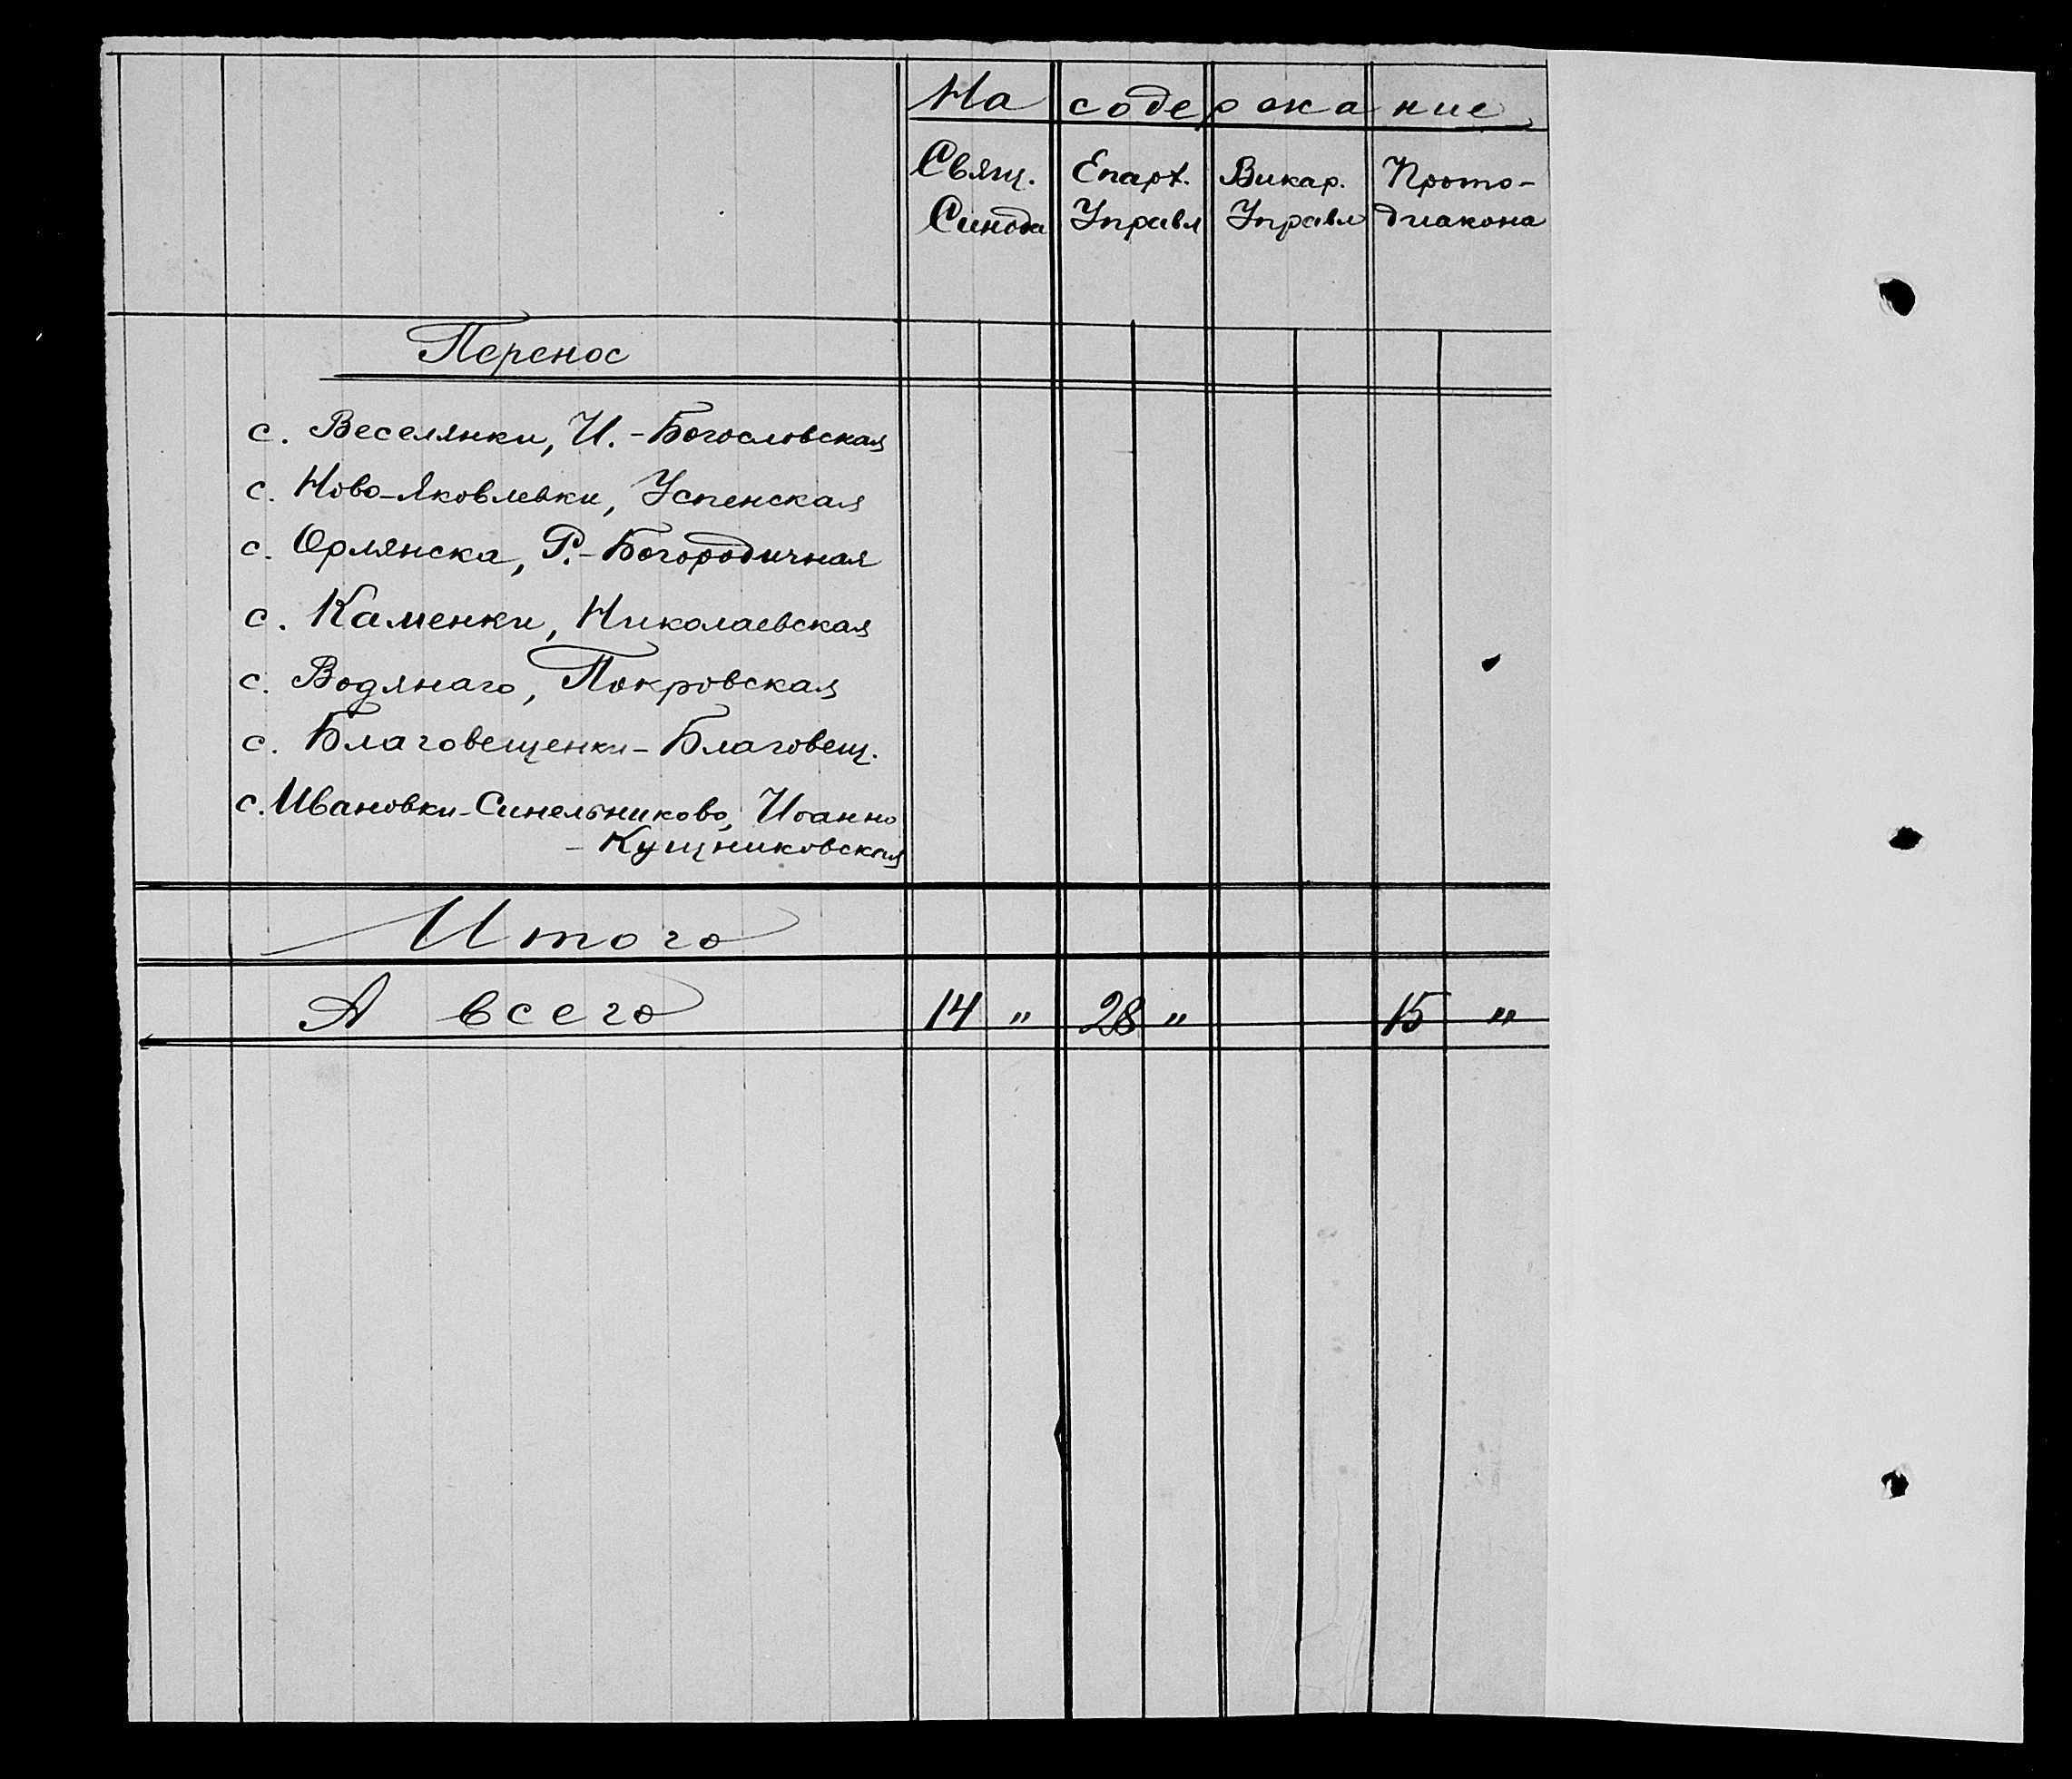 На содержание
Свящ. Епарх. Викар. Прото-
Синода Управл Управл диакона
Перенос
с. Веселянки, И.-Богословская
с. Ново-Яковлевки, Успенская
с. Орлянска, Р.-Богородичная
с. Каменки, Николаевская
с. Водянаго, Покровская
с. Благовещенки-Благовещ.
с. Ивановки-Синельниково, Иоанно
- Кущниковская
Итого
А всего 14 " 28 " 15 "